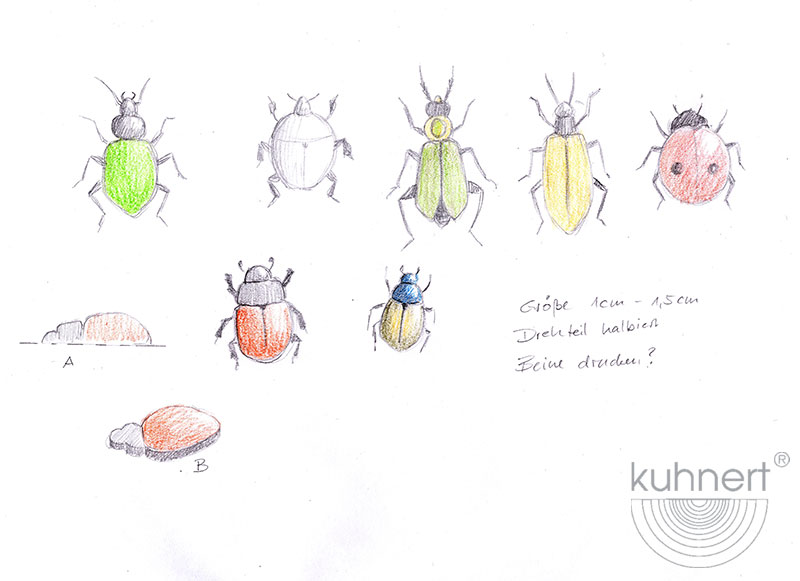 Größe 1cm - 1,5cm
Drehteil halbiert
Beine drucken?
A
B
kuhnert®